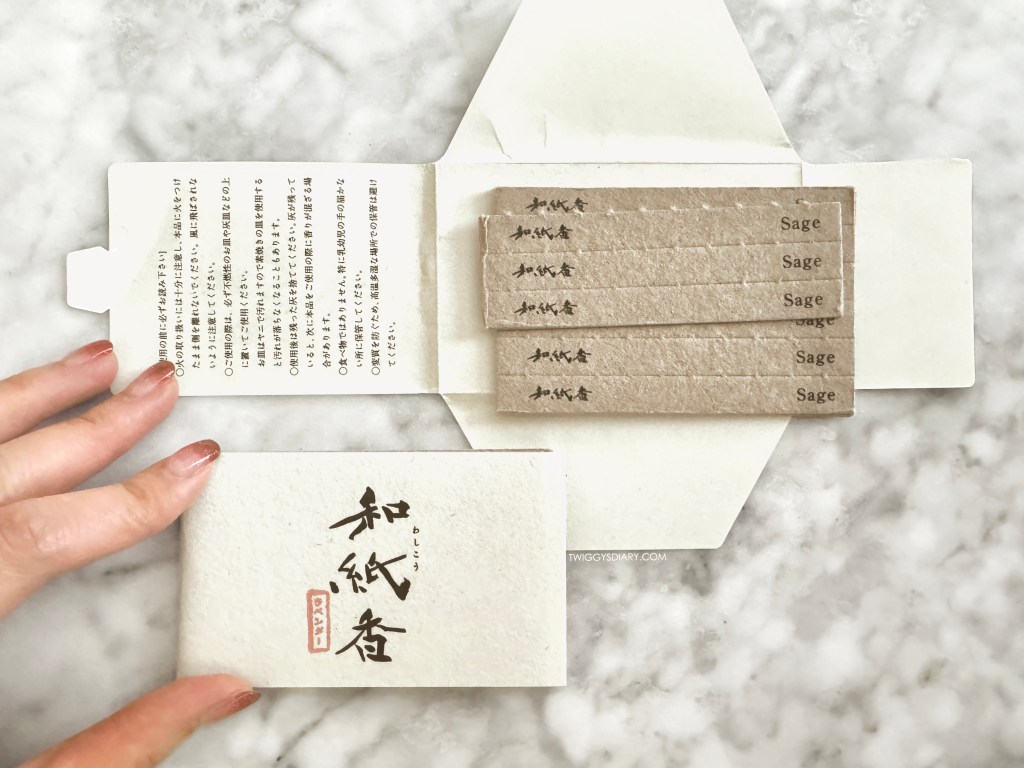 使用の前に必ずお読み下さい]
○火の取り扱いには十分に注意し、本品に火をつけ
たまま側を離れないでください。風に飛ばされな
いように注意してください。
○ご使用の際は、必ず不燃性のお皿や灰皿などの上
に置いてご使用ください。
お皿はヤニで汚れますので素焼きの皿を使用する
と汚れが落ちなくなることもあります。
○使用後は残った灰を捨ててください。灰が残って
いると、次に本品をご使用の際に香りが混ざる場
合があります。
○食べ物ではありません。特に乳幼児の手の届かな
い所に保管してください。
○変質を防ぐため、高温多湿な場所での保管は避け
てください。
和紙香
和紙香 Sage
和紙香 Sage
和紙香 Sage
Sage
和紙香 Sage
和紙香 Sage
和紙香
わしこう
TWIGGYSDIARY.COM